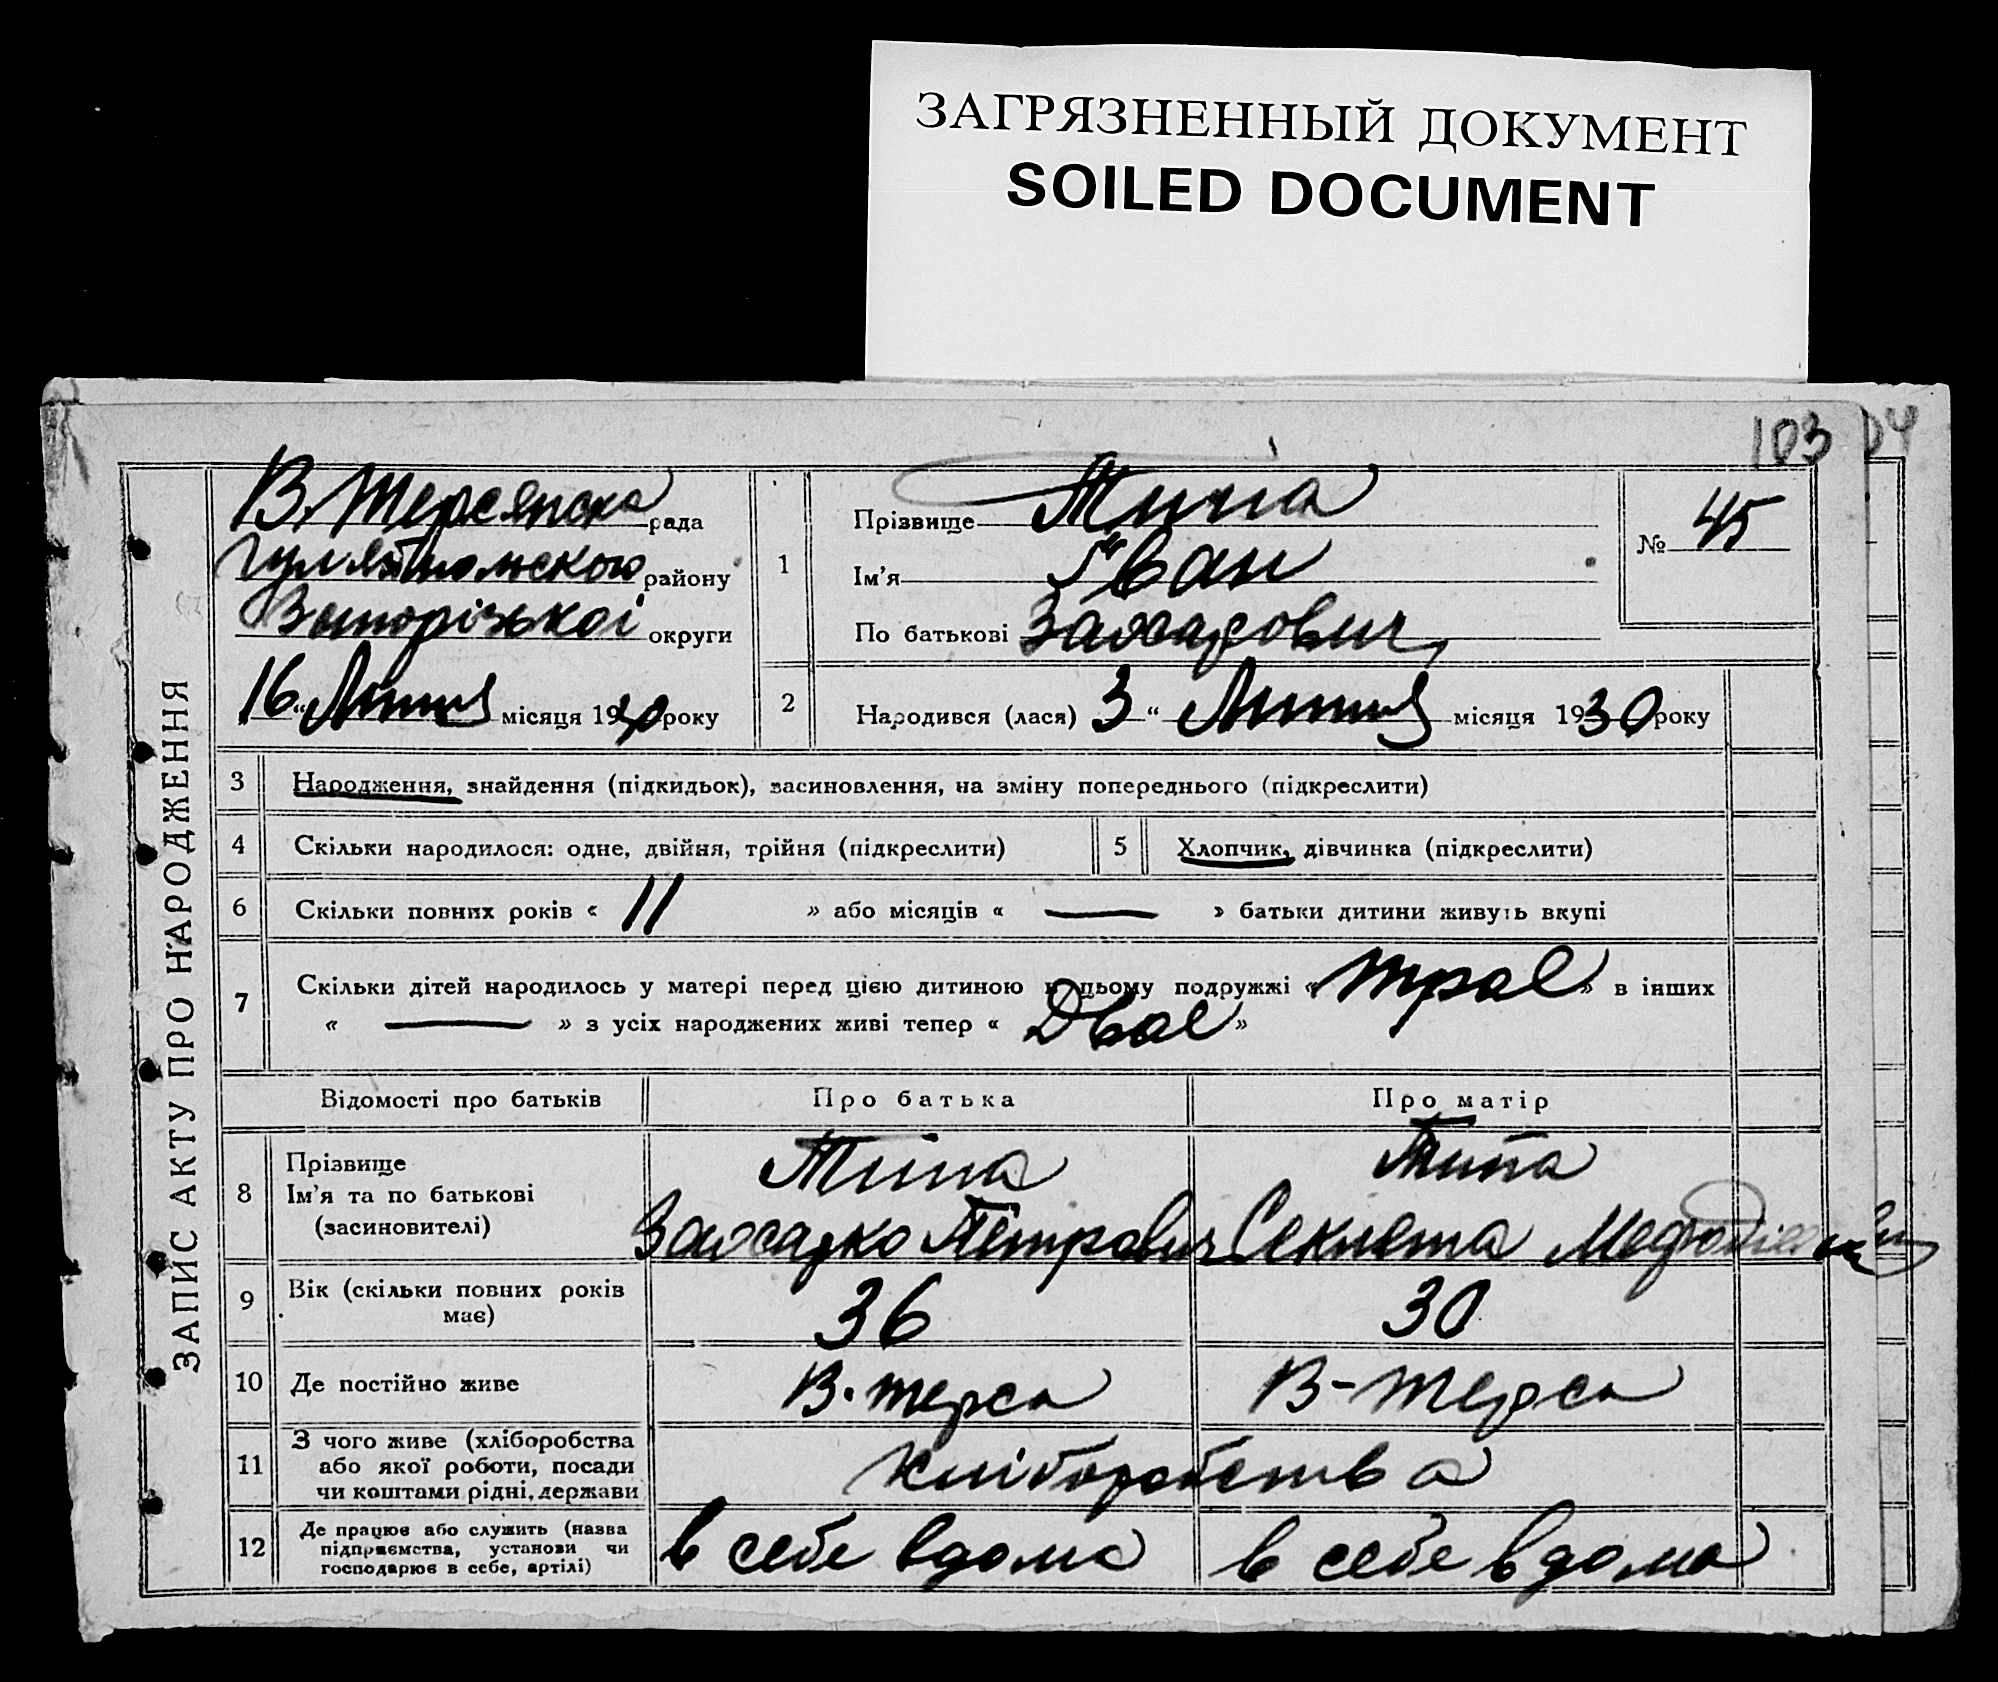 ЗАГРЯЗНЕННЫЙ ДОКУМЕНТ
SOILED DOCUMENT
103 04
ЗАПИС АКТУ ПРО НАРОДЖЕННЯ
В. Терсянска рада
району
Запорізької округи
16 " місяця 1930 року
1
Прізвище
Ім'я Іван
По батькові Захарович
№ 45
2
Народився (лася) 3 " місяця 1930 року
3 Народження, знайдення (підкидьок), засиновлення, на зміну попереднього (підкреслити)
4 Скільки народилося: одне, двійня, трійня (підкреслити) 5 Хлопчик, дівчинка (підкреслити)
6 Скільки повних років « 11 » або місяців « — » батьки дитини живуть вкупі
7 Скільки дітей народилось у матері перед цією дитиною в цьому подружжі « трое » в інших
« — » з усіх народжених живі тепер « Двое »
Відомості про батьків Про батька Про матір
8 Прізвище
Ім'я та по батькові
(засиновителі)
Захарко Петрович Секлета
9 Вік (скільки повних років має) 36 30
10 Де постійно живе В. терса В-терса
11 З чого живе (хліборобства
або якої роботи, посади
чи коштами рідні, держави
хліборобства
12 Де працює або служить (назва
підприємства, установи чи
господарює в себе, артілі)
в себе вдома в себе вдома